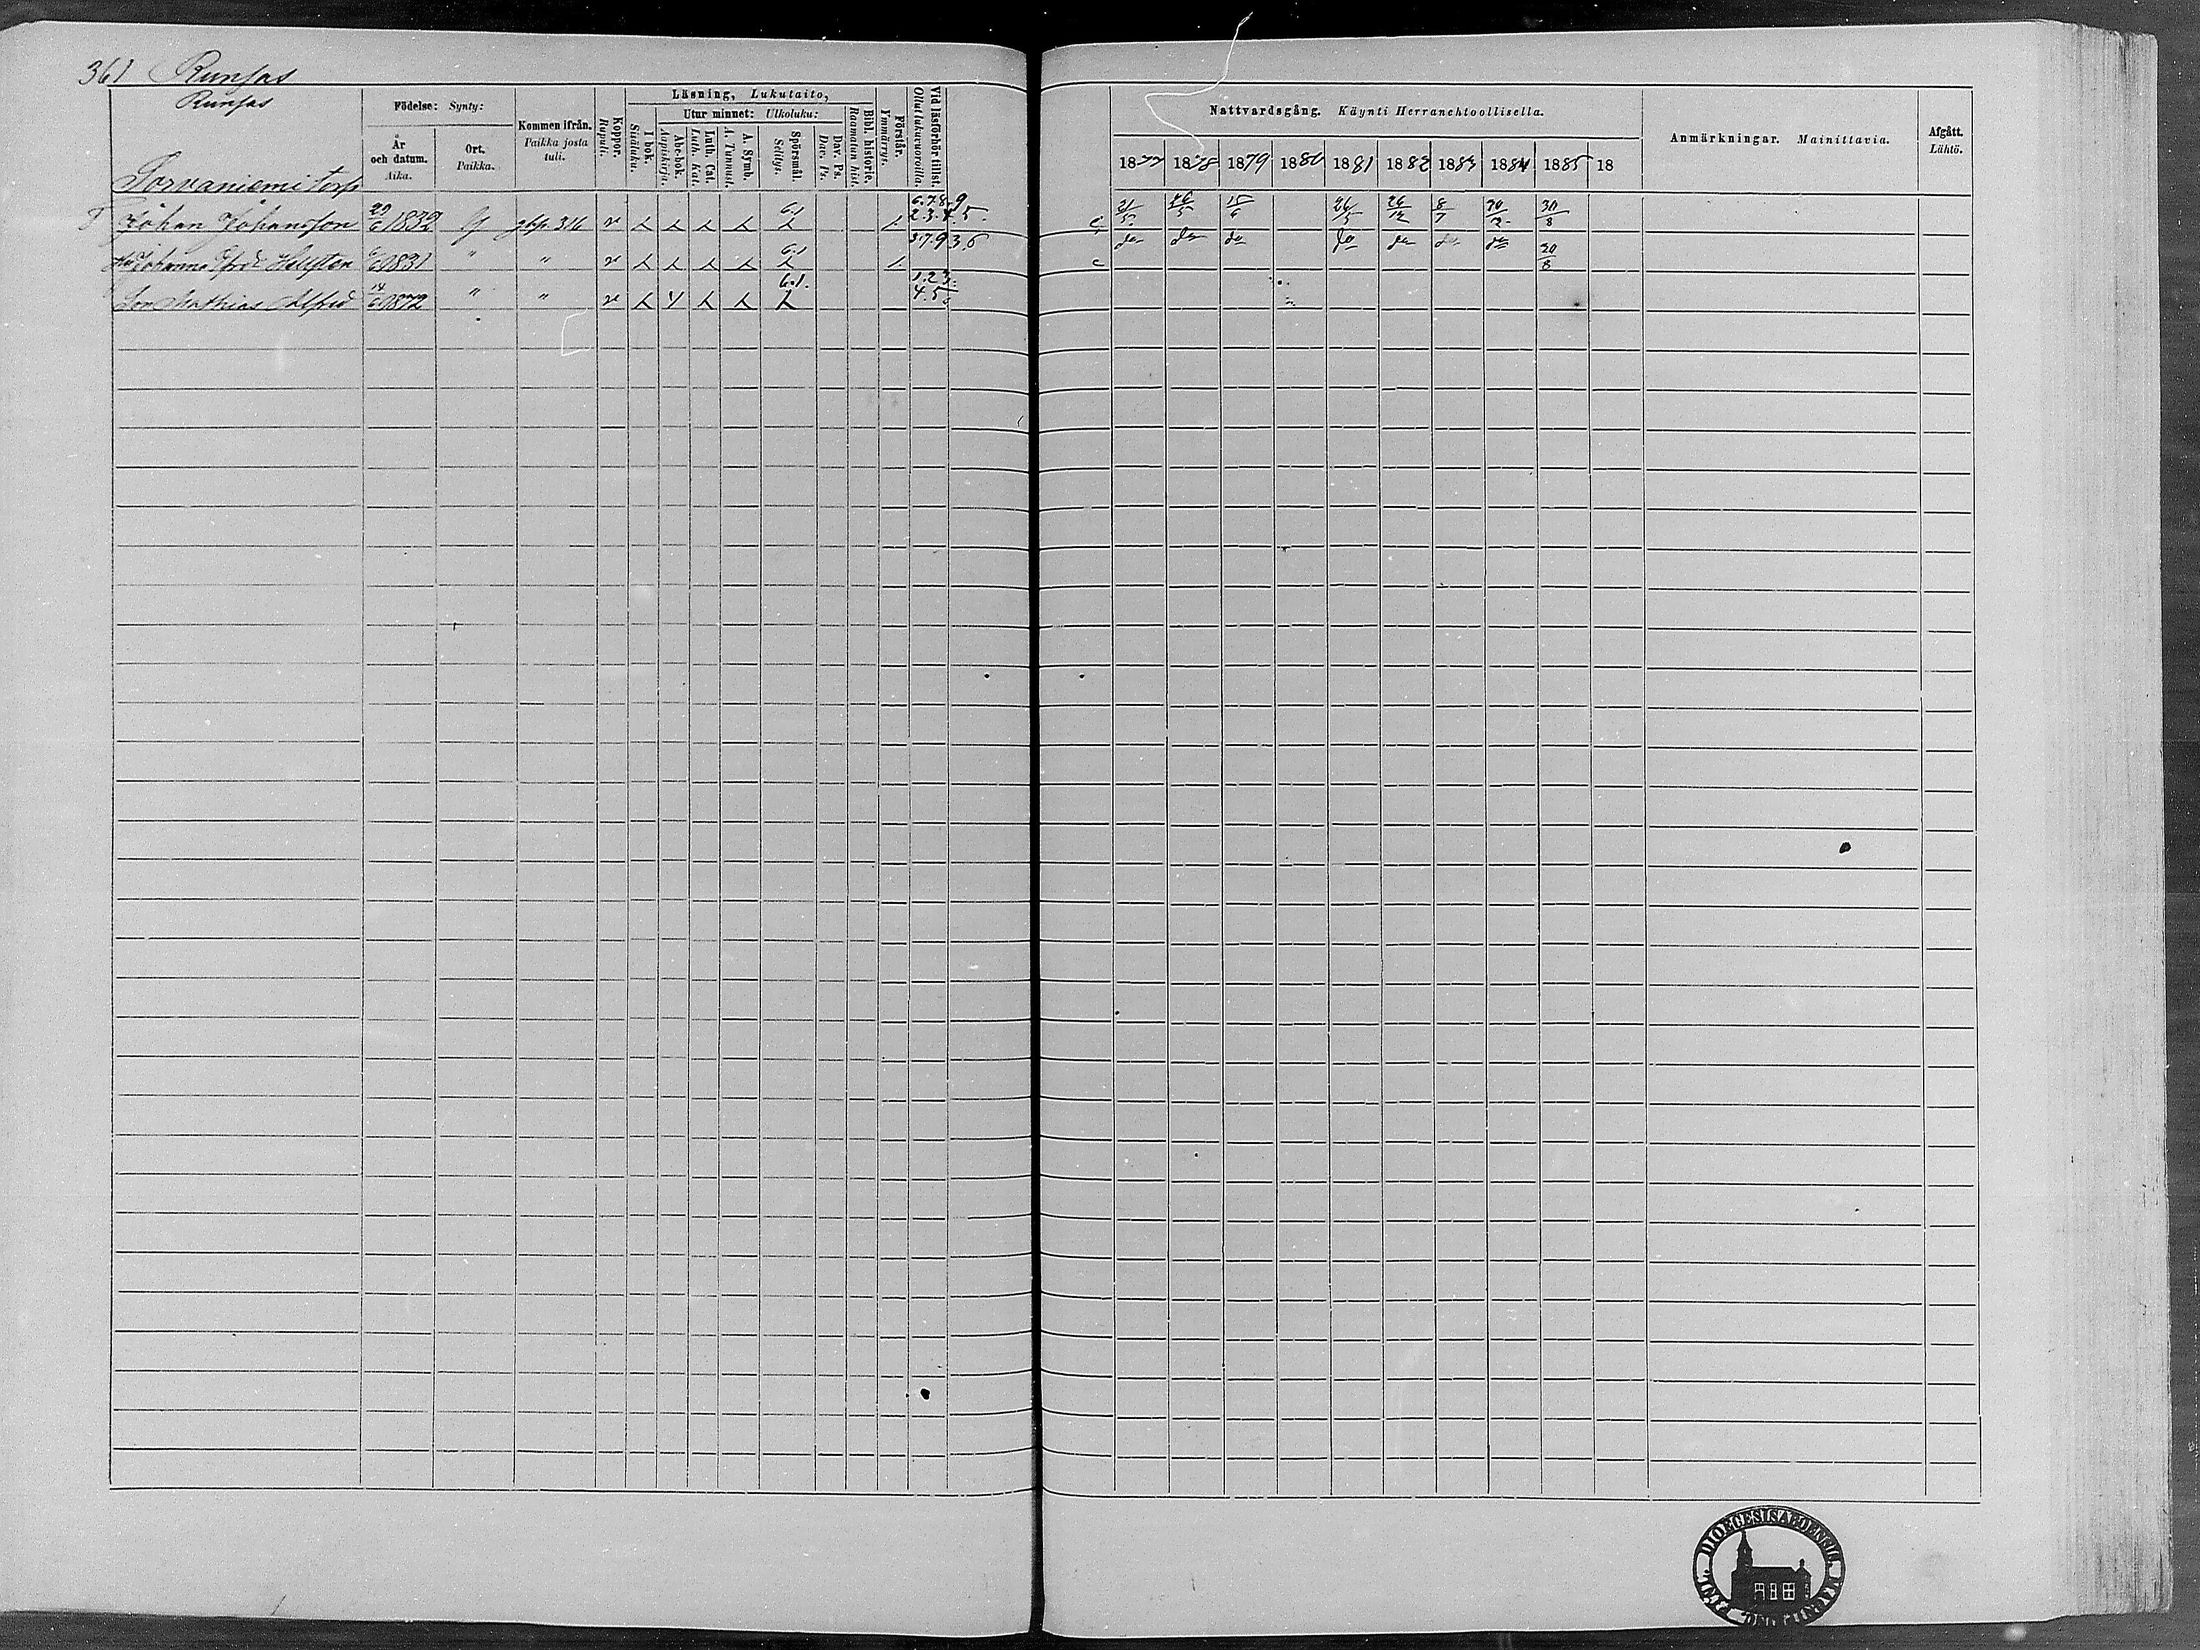 361 Runsas
Runsas
Födelse: Synty:
Läsning, Lukutaito,
Utur minnet: Ulkoluku:
År och datum. Aika.
Ort. Paikka.
Kommen ifrån. Paikka josta tuli.
Koppor. Rupuli.
I bok. Sisäluku.
Abc-bok. Aapiskirja.
Luth. Cat. Luth. Kat.
A. Symb. A. Tunnust.
Spörsmål. Selitys.
Dav. Ps. Dav. Ps.
Bibl. historie. Raamatun hist.
Förstår. Ymmärrys.
Vid läsförhör tillst. Ollut lukuvuoroilla.
Nattvardsgång. Käynti Herranehtoollisella.
1877 1878 1879 1880 1881 1882 1883 1884 1885 18
Anmärkningar. Mainittavia.
Afgått. Lähtö.
Sorvaniemi torp
Johan Johansson 29/6 1832 gbp. 316 v 6.1 6.7.8.9 2.3.4.5. 21/5 26/5 15/6 26/5 26/12 8/7 30/8
Johanna 1831 " " v 6.1 3.7.9 3.5 c do do do do do do do 30/8
Son Mathias Alfred 14/6 1872 " " v 6.1. 1.2.3. 4.5